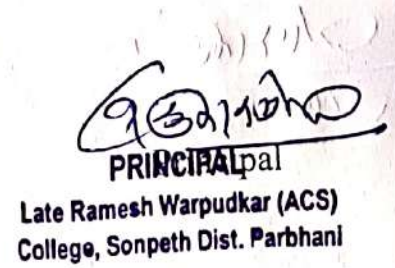 PRINCIPAL
Principal
Late Ramesh Warpudkar (ACS)
College, Sonpeth Dist. Parbhani